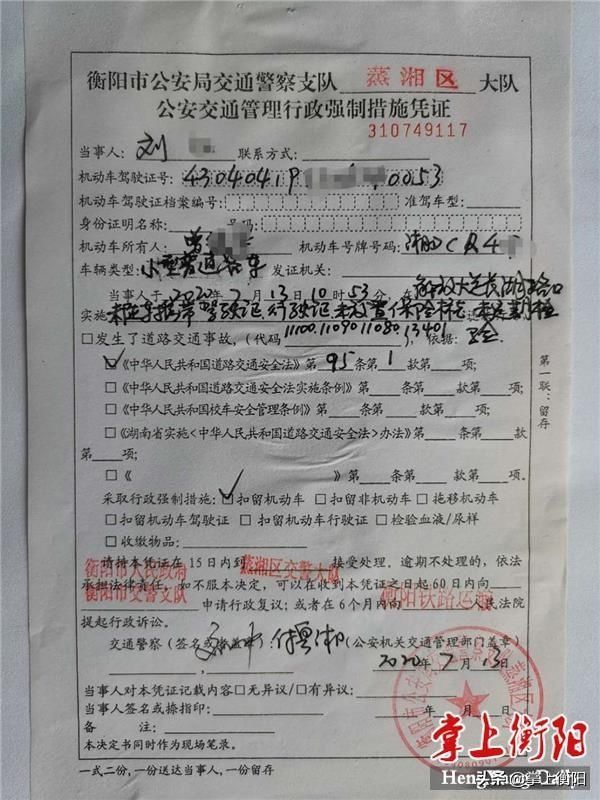 衡阳市公安局交通警察支队 蒸湘区 大队
公安交通管理行政强制措施凭证
310749117
当事人：刘 联系方式：
机动车驾驶证号：43040419 0053
机动车驾驶证档案编号 准驾车型：
身份证明名称： 号码：
机动车所有人：曾 机动车号牌号码：湘DCR4
车辆类型：小型普通客车 发证机关：
当事人于2020年7月13日10时53分，在解放大道长湖路口
实施未随车携带驾驶证行驶证未放置保险标志未定期检验
□发生了道路交通事故，（代码 11100.11090 11080 13401 ），依据：
☑《中华人民共和国道路交通安全法》第95条第1款第 项；
□《中华人民共和国道路交通安全法实施条例》第 条第 款第 项；
□《中华人民共和国校车安全管理条例》第 条第 款第 项；
□《湖南省实施<中华人民共和国道路交通安全法>办法》第 条第 款
第 项；
□《 》第 条第 款第 项。
采取行政强制措施：☑扣留机动车 □扣留非机动车 □拖移机动车
□扣留机动车驾驶证 □扣留机动车行驶证 □检验血液/尿样
□收缴物品：
请持本凭证在15日内到 蒸湘区交警大队 接受处理。逾期不处理的，依法
承担法律责任。如不服本决定，可以在收到本凭证之日起60日内向
衡阳市人民政府
衡阳市交警支队 申请行政复议；或者在6个月内向 衡阳铁路运输 人民法院
提起行政诉讼。
交通警察（签名或盖章） （公安机关交通管理部门盖章）
2020年7月13日
当事人对本凭证记载内容□无异议/□有异议：
当事人签名或捺指印： 年 月 日
备 注：
本决定书同时作为现场笔录。
一式二份，一份送达当事人，一份留存
第一联：留存
掌上衡阳
头条 @掌上衡阳